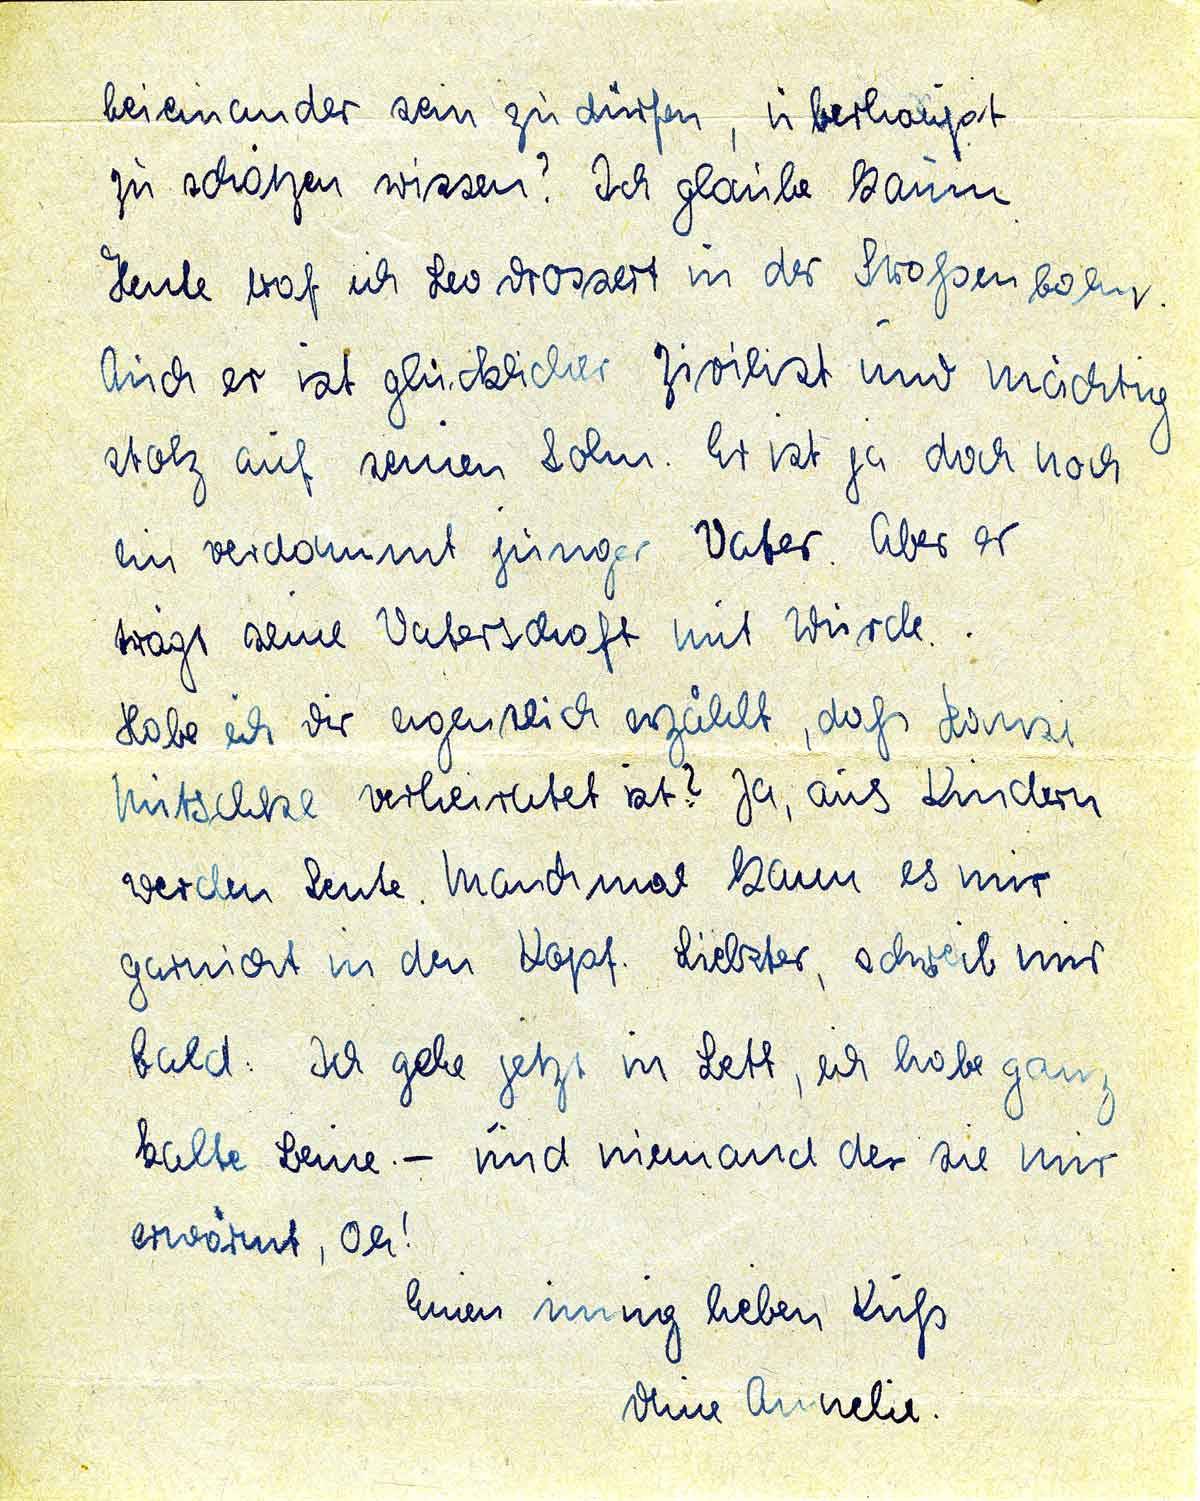 beieinander sein zu dürfen, überhaupt
zu schätzen wissen? Ich glaube kaum
Heute traf ich Leo Drossert in der Straßenbahn.
Auch er ist glücklicher Zivilist und mächtig
stolz auf seinen Sohn. Er ist ja doch noch
ein verdammt junger Vater. Aber er
trägt seine Vaterschaft mit Würde.
Habe ich Dir eigentlich erzählt, daß Hansi
Nitschke verheiratet ist? Ja, aus Kindern
werden Leute. Manchmal kann es mir
garnicht in den Kopf. Liebster, schreib mir
bald. Ich gehe jetzt in Bett, ich habe ganz
kalte Beine. – und niemand der sie mir
erwärmt, Oh!
Einen innig lieben Kuß
Deine Annelie.